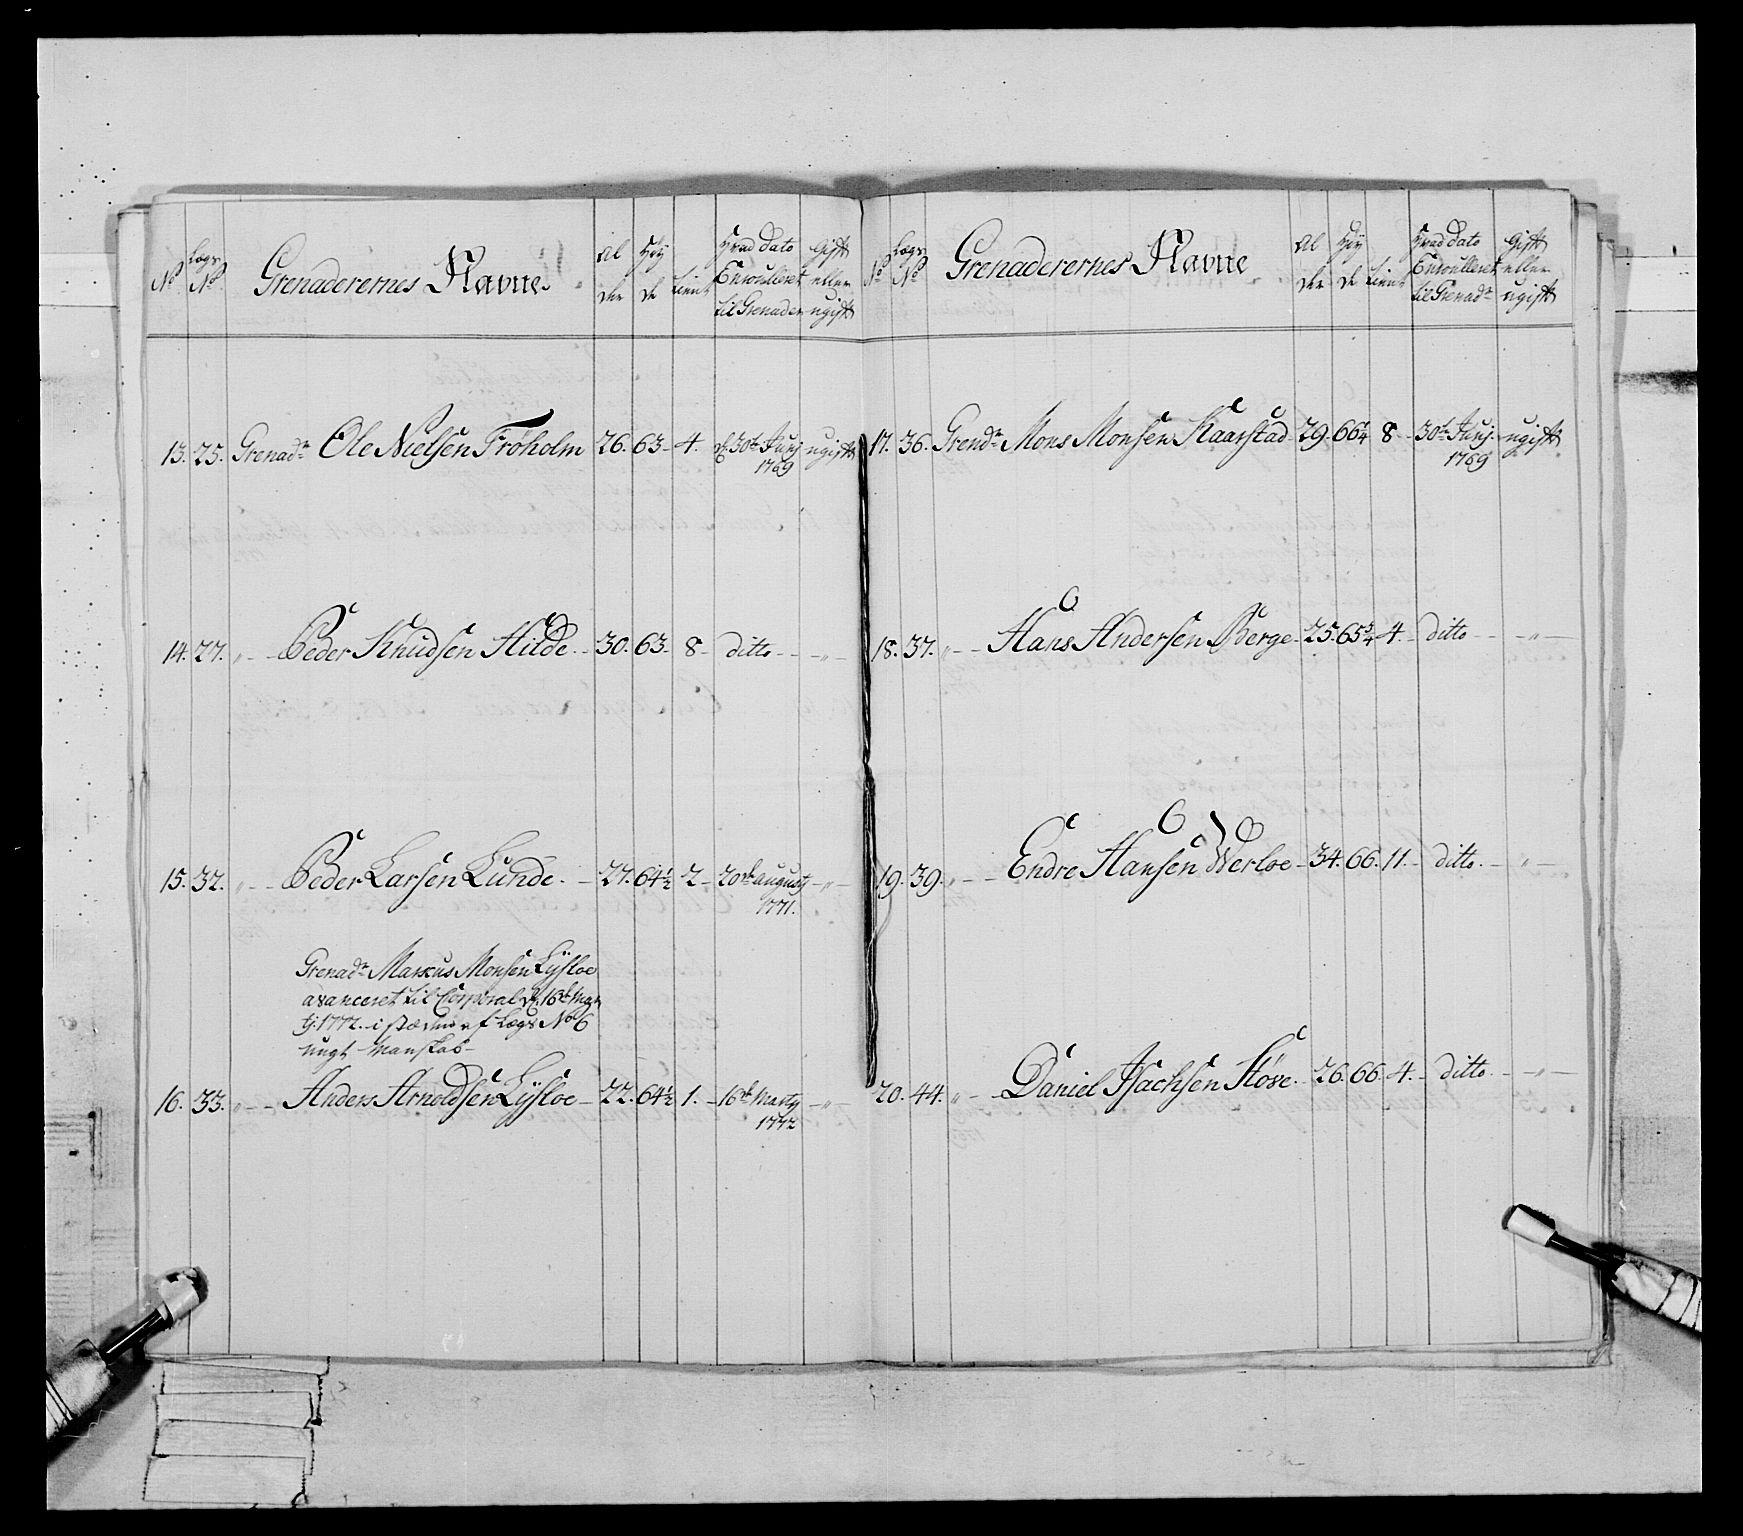 No Lægs No Grenaderernes Navne. Alder Høyde Tient Hvad dato Enroulleret til Grenader Gift eller ugift
13. 25. Grenadr Ole Nielsen Frøholm 26. 63 4. d. 30te Junj 1769 ugift
14. 27. „ Peder Knudsen Hilde 30. 63 8 ditto „
15. 32. „ Peder Larsen Lunde 27. 64½ 2 20de augusty 1771. „
Grenadr Markus Monsen Lÿsloe
avanceret til Corporal d. 16de Mar
tj. 1772. i stæden af Lægs No 6
ungt Manskab
16. 33. „ Anders Arnoldsen Lÿsloe 22. 64½ 1. 16de Marty 1772 „
No Lægs No Grenaderernes Navne Alder Høyde Tient Hvad dato Enroulleret til Grenadr Gift eller ugift
17. 36. Grenadr Mons Monsen Kaarstad 29. 66¼ 8 30te Junj. 1769 ugift
18. 37. „ Hans Andersen Berge 25. 65¾ 4. ditto „
19. 39. „ Endre Hansen Werloe 34. 66. 11. ditto „
20. 44. „ Daniel Isachsen Høve 26. 66. 4. ditto „